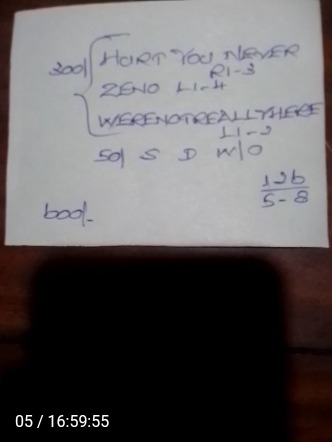 300/ HURT YOU NEVER
R1-3
ZENO L1-4
WERENOTREALLYHERE
L1-2
50/ S D W/O
126
5-8
600/-
05 / 16:59:55